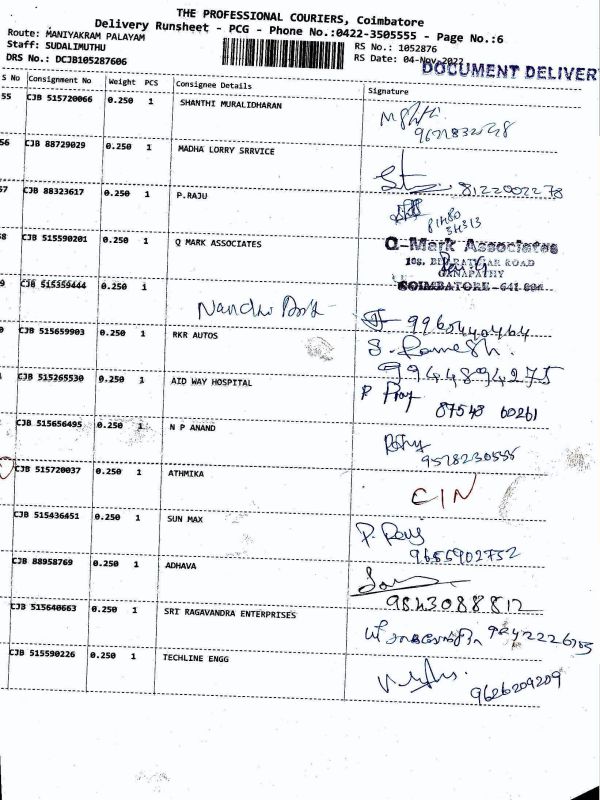 THE PROFESSIONAL COURIERS, Coimbatore
Delivery Runsheet - PCG - Phone No.:0422-3505555 - Page No.:6
Route: MANIYAKRAM PALAYAM
Staff: SUDALIMUTHU
RS No.: 1052876
DRS No.: DCJB105287606
RS Date: 04-Nov-2022
DOCUMENT DELIVER
S No Consignment No Weight PCS Consignee Details Signature
55 CJB 515720066 0.250 1 SHANTHI MURALIDHARAN
56 CJB 88729029 0.250 1 MADHA LORRY SRRVICE
8122002278
57 CJB 88323617 0.250 1 P.RAJU
8 CJB 515590201 0.250 1 Q MARK ASSOCIATES
Q-Mark Associates
108, BHARATHIAR ROAD
GANAPATHY
COIMBATORE - 641 006
9 CJB 515359444 0.250 1
9960440464
0 CJB 515659903 0.250 1 RKR AUTOS
S. Ramesh.
9944894275
CJB 515265530 0.250 1 AID WAY HOSPITAL
87548 60261
CJB 515656495 0.250 1 N P ANAND
9578230555
CJB 515720037 0.250 1 ATHMIKA
CIN
CJB 515436451 0.250 1 SUN MAX
9655902752
CJB 88958769 0.250 1 ADHAVA
9843088812
CJB 515640663 0.250 1 SRI RAGAVANDRA ENTERPRISES
CJB 515590226 0.250 1 TECHLINE ENGG
9626209209